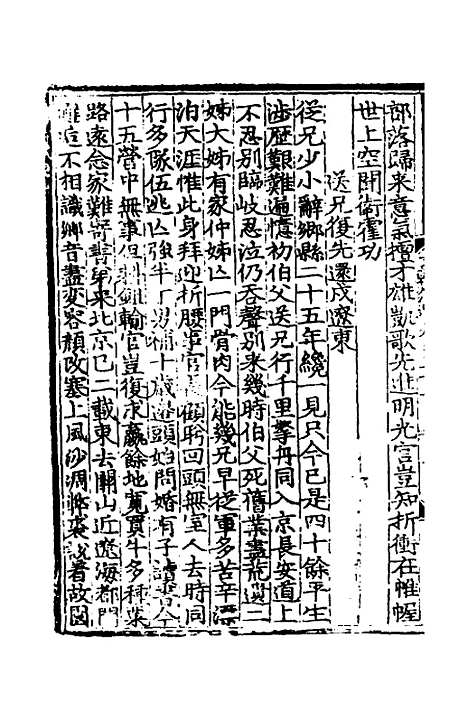 部落歸來意氣擅才雄凱歌先進明光宮豈知折衝在帷幄
世上空聞衛霍功
送兄復先還戍遼東
從兄少小辭鄉縣二十五年纔一見只今已是四十餘平生
涉歷艱難遍憶初伯父送兄行千里挈丹同入京長安道上
不忍別臨岐忍泣仍吞聲別來幾時伯父死舊業盡
姊大姊有家仲姊亡一門骨肉今能幾兄早從軍多苦辛漂
泊天涯惟此身拜迎折腰事官長顧盼回頭無室人去時同
行多隊伍逃亡強半丁男補十歲邊頭始問婚有子讀書今
十五營中無事但輸官豈復求贏餘地寬買牛多種菜
路遠念家難寄書弟來北京已二載東去關山近遼海都門
雖近不相識鄉音盡變容顏改塞上風沙凋弊裘說着故園